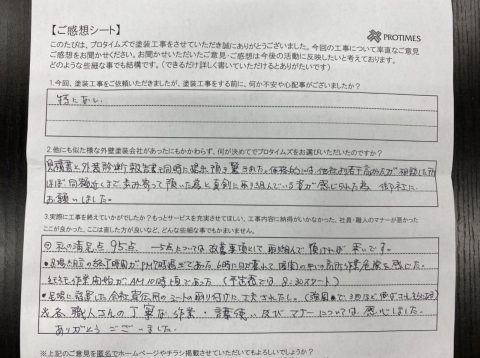 【ご感想シート】
PROTIMES
このたびは、プロタイムズで塗装工事をさせていただき誠にありがとうございました。今回の工事について率直なご意見
ご感想をお聞かせください。お聞かせいただいたご意見・ご感想は今後の活動に反映したいと考えております。
どのような些細な事でも結構です。（できるだけ詳しく書いていただけるとありがたいです）
1.今回、塗装工事をご依頼いただきましたが、塗装工事をする前に、何か不安や心配事がございましたか？
特になし
2.他にも似た様な外壁塗装会社があったにもかかわらず、何が決めてでプロタイムズをお選びいただいたのですか？
見積書と外装診断報告書を同時に提示頂き驚かされた。価格的には、他社より若干高かったが相談した所
ほぼ同額近くまで歩み寄って頂いた為と真剣に取り組んでいる姿が感じられた為 御社に
お願いしました。
3.実際に工事を終えていかがでしたか？もっとサービスを充実させてほしい、工事内容に納得がいかなかった、社員・職人のマナーが悪かった
ここが良かった、ここは直した方が良いなど、どんな些細な事でもかまいません。
私の満足点 95点 −5点については 改善事項として 取組んで 頂ければ 幸いです。
の終了時間が PM7時過ぎであった 6時に日が暮れて 暗闇の中での高所作業 危険を感じた。
作業開始が AM10時頃であった（予定表では 8:30スタート）
足場に設置した会社宣伝用のシートの取り付けに工夫されたし。
職人さんの丁寧な作業・言葉使い及びマナーについては感心しました。
ありがとうございました。
※上記のご意見を匿名でホームページやチラシ掲載させていただいてもよろしいでしょうか？